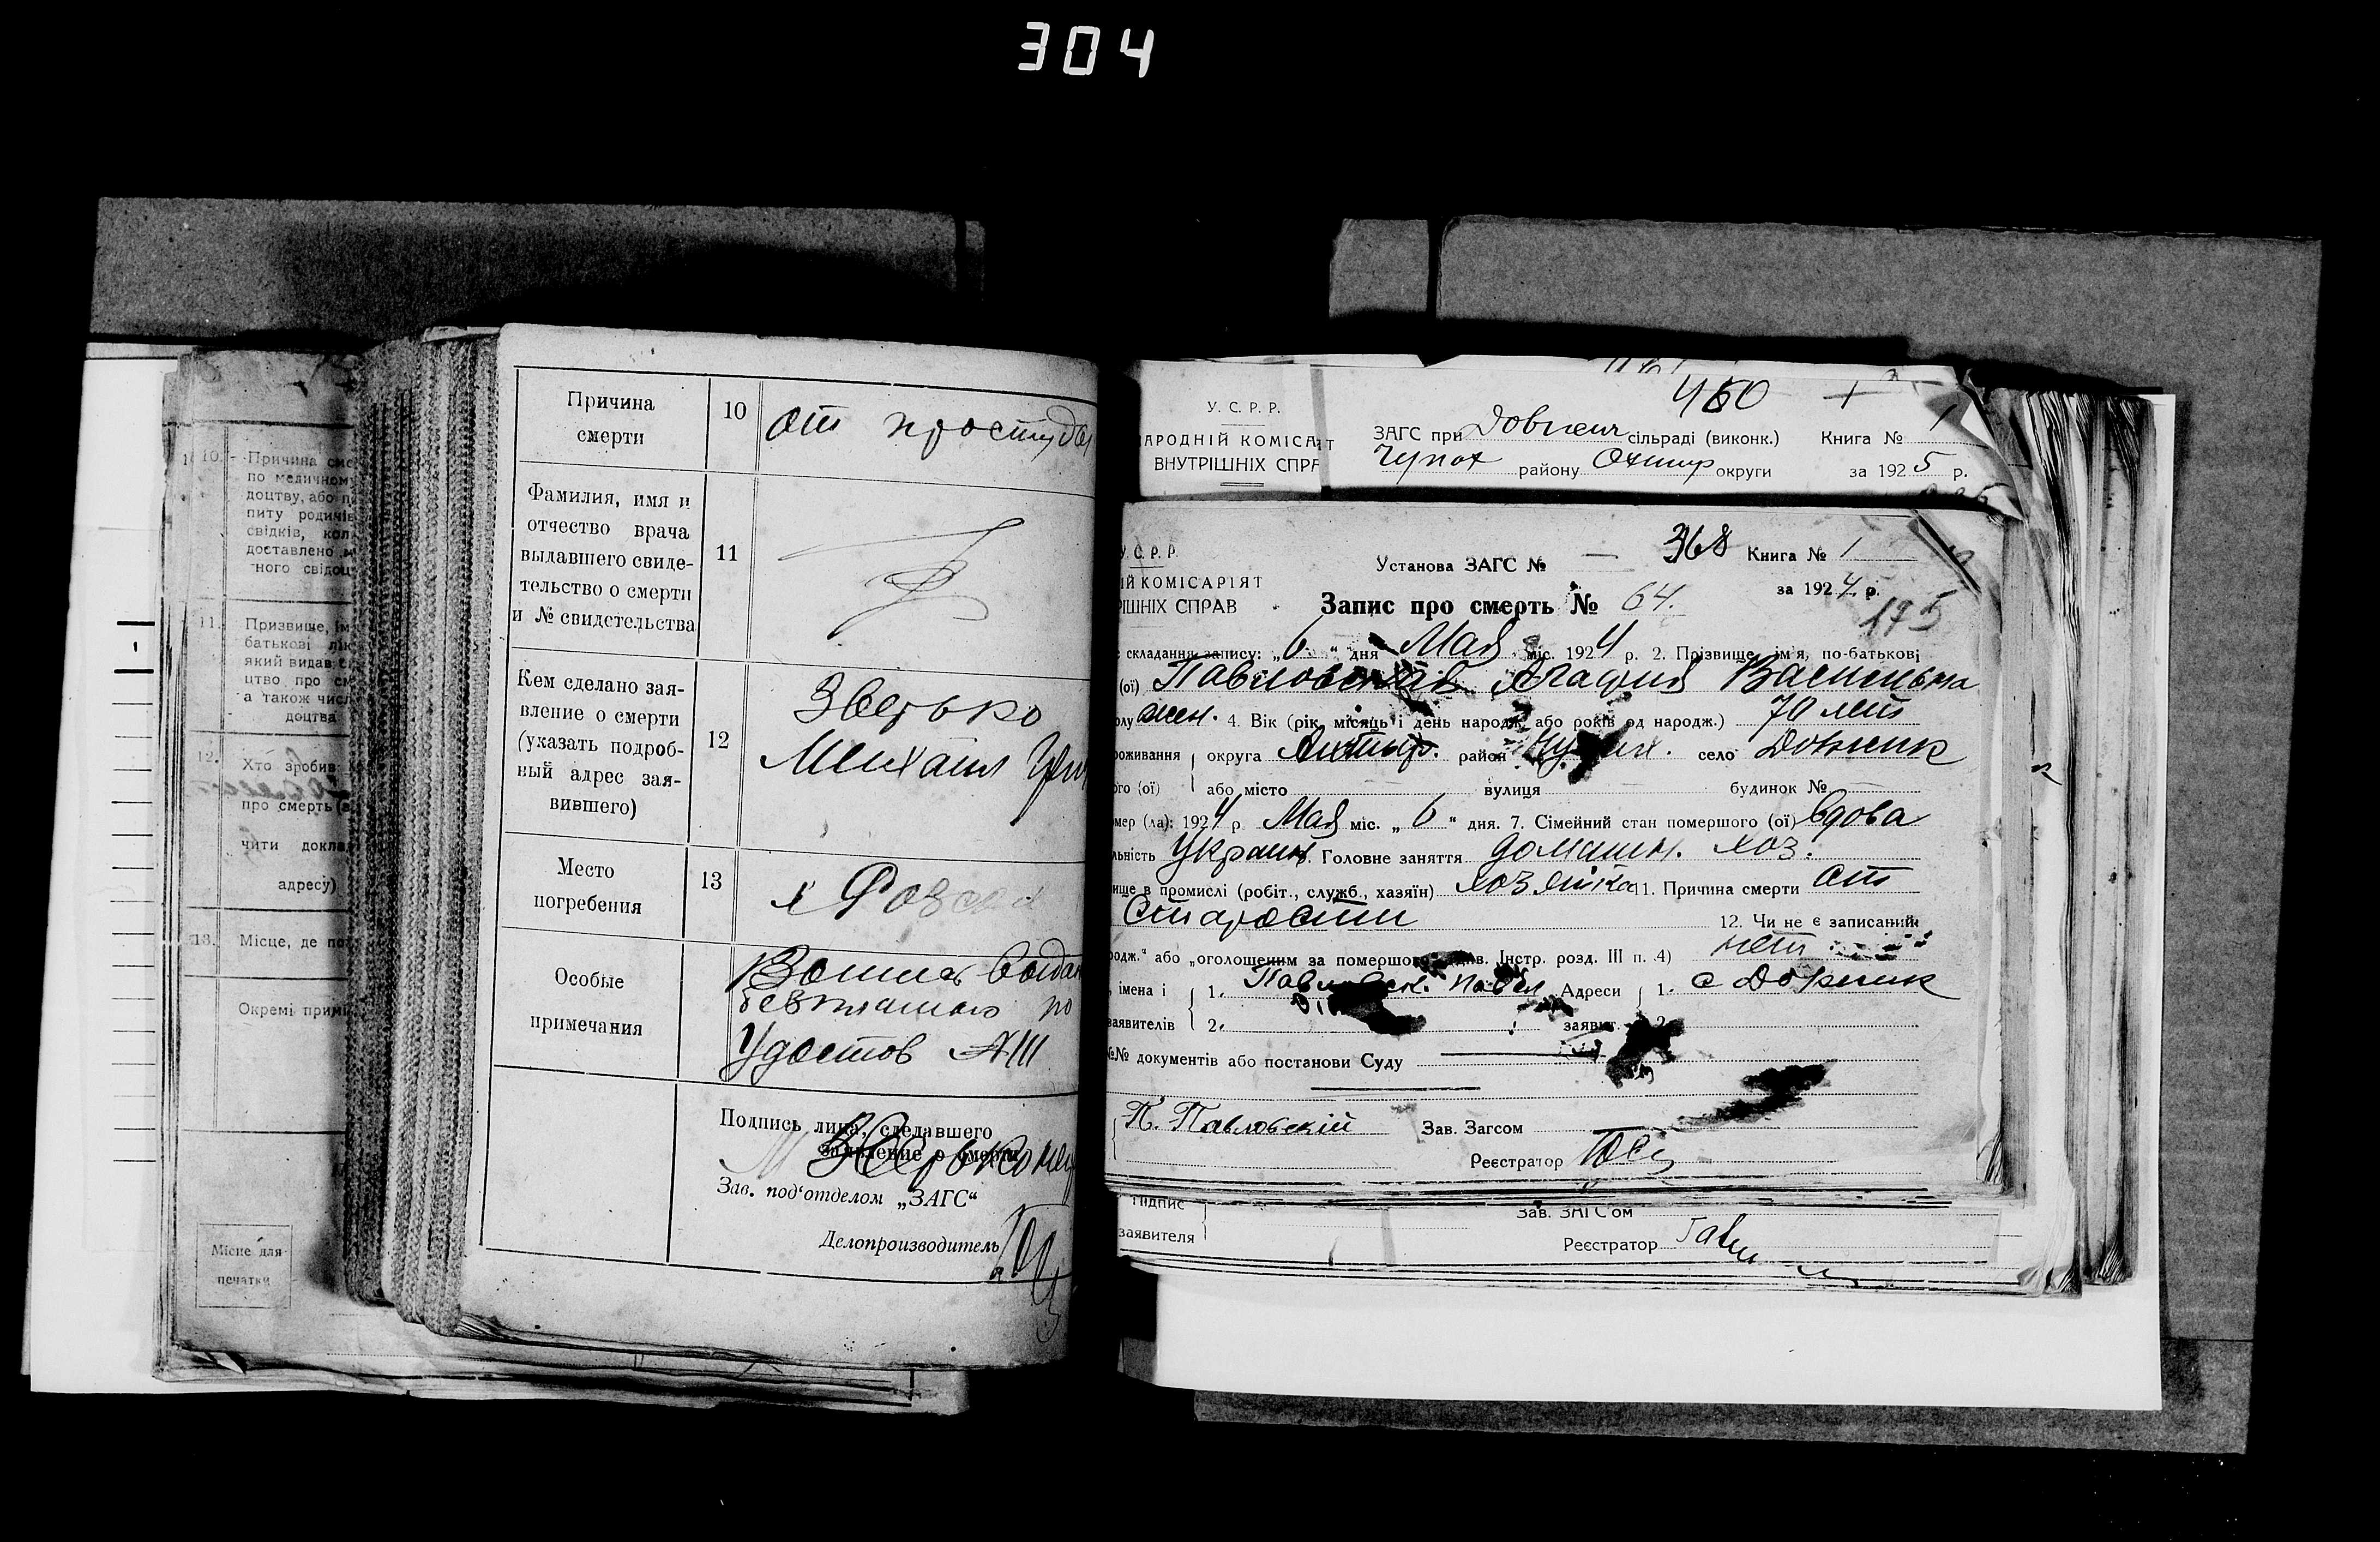 304
10.
Причина сме
по медичном
доцтву, або п
питу родичів
свідків, кол
доставлено м
ного свідоц
11.
Призвище, ім
батькові лік
який видав с
цтво про см
а також числ
доцтва
12.
Хто зробив
про смерть (в
чити докла
адресу)
13.
Місце, де по
Окремі примі
Місце для
печатки
Причина
смерти
10
от простуды
Фамилия, имя и
отчество врача
выдавшего свиде-
тельство о смерти
и № свидетельства
11
Кем сделано зая-
вление о смерти
(указать подроб-
ный адрес зая-
вившего)
12
Зверько
Михаил
Место
погребения
13
Особые
примечания
по
Удостов
Подпись лица, сделавшего
заявление о смерти
Зав. под'отделом „ЗАГС“
Делопроизводитель
У. С. Р. Р.
АРОДНІЙ КОМІСАТ
ВНУТРІШНІХ СПРА
460
ЗАГС при сільраді (виконк.) Книга № 1
Чупах району Охтир округи за 1925 р.
У. С. Р. Р.
ІЙ КОМІСАРІЯТ
РІШНІХ СПРАВ
Установа ЗАГС № — 368 Книга № 1
за 1924 р.
Запис про смерть № 64.
175
складання запису: „6“ дня Мая міс. 1924 р. 2. Прізвище, ім'я, по-батькові
(ої) Павловская Агафия Васильевна
олу жен. 4. Вік (рік, місяць і день народж. або років од народж.) 70 лет
роживання округа Ахтыр. район село Довжик
ого (ої) або місто вулиця будинок №
мер (ла): 1924 р Мая міс. „6“ дня. 7. Сімейний стан помершого (ої) вдова
льність Украин. Головне заняття домашн. хоз.
ище в промислі (робіт., служб., хазяїн) хозяйка 11. Причина смерти от
старости 12. Чи не є записаний
родж.“ або „оголошеним за помершого“ див. Інстр. розд. III п. 4) нет
, імена і 1. Павловск. Павел Адреси 1. с Довжик
заявителів 2. заявит. 2.
№№ документів або постанови Суду —
П. Павловский Зав. Загсом
Реєстратор
підпис Зав. ЗАГС'ом
заявителя Реєстратор